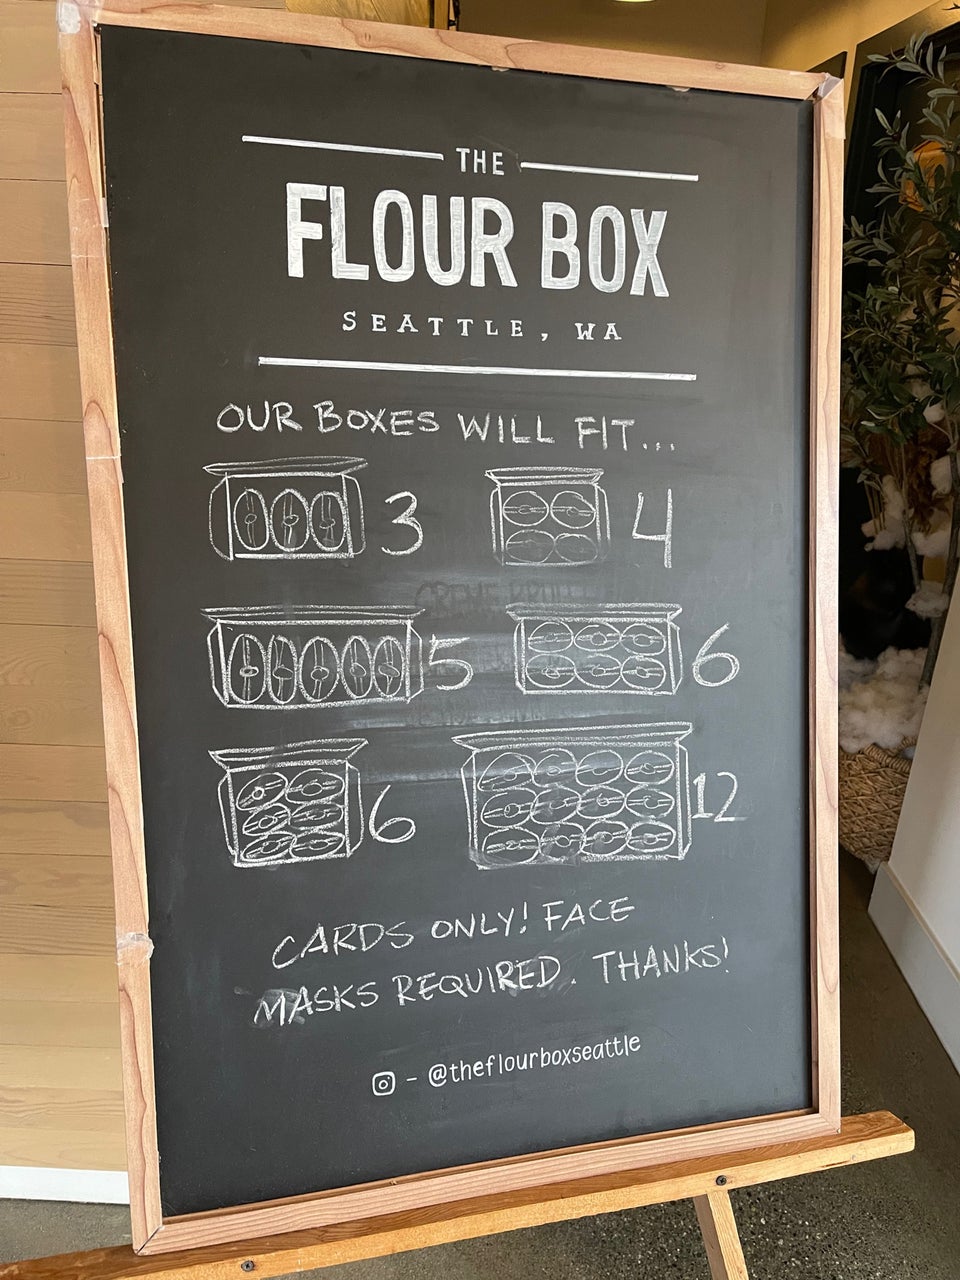 THE
FLOUR BOX
SEATTLE, WA
OUR BOXES WILL FIT...
3 4
5 6
6 12
CARDS ONLY! FACE
MASKS REQUIRED. THANKS!
- @theflourboxseattle